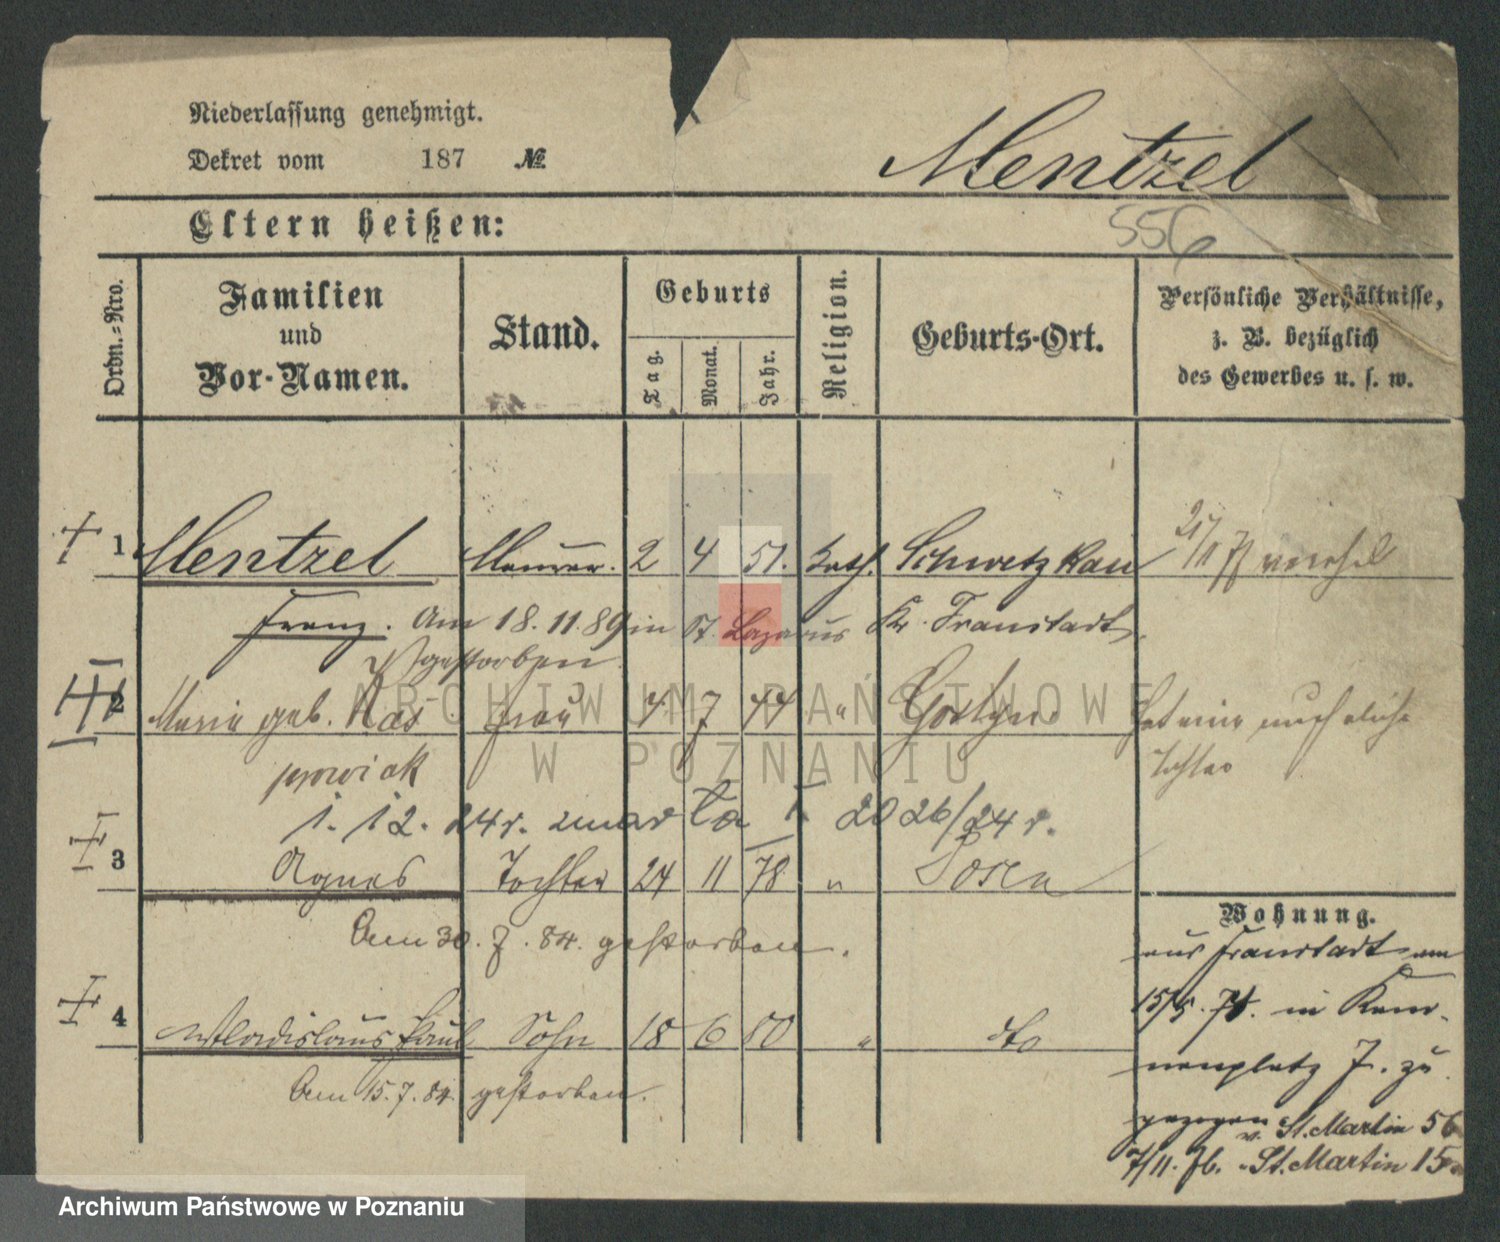 Niederlassung genehmigt.
Dekret vom 187 №
Mentzel
Eltern heißen:
556
Ordn.=Nro.
Familien
und
Vor-Namen.
Stand.
Geburts
Tag.
Monat.
Jahr.
Religion.
Geburts-Ort.
Persönliche Verhältnisse,
z. B. bezüglich
des Gewerbes u. s. w.
1 Mentzel Maurer. 2 4 51. kath. Schwetzkau
Franz. Am 18.11.89 in St. Lazarus Kr. Fraustadt
gestorben
2 Maria geb. Kas Frau 4 7 44 " Gostyn
prowiak
1. 12. 24 r. zmarła 2026/24 r.
3 Agnes Tochter 24 11 78 " Posen
Am 30. 7. 84. gestorben.
4 Wladislaus Paul Sohn 18 6 80 " dto
Am 15.7.84. gestorben.
Wohnung.
aus Fraustadt am
15/5. 74. in
7. zu
gezogen v. St. Martin 56
7/11. 76. St. Martin 15
ARCHIWUM PAŃSTWOWE
W POZNANIU
Archiwum Państwowe w Poznaniu